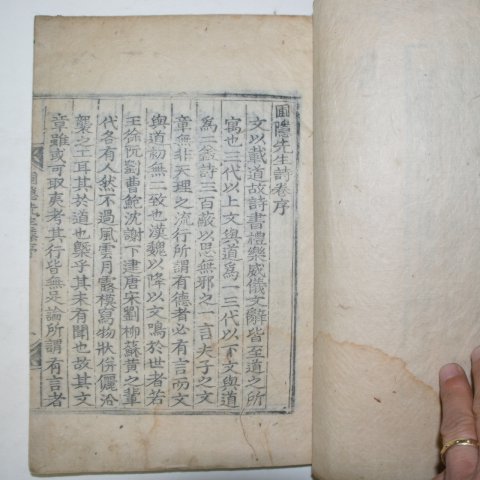 圃隱先生詩卷序
文以載道故詩書禮樂威儀文辭皆至道之所
寓也三代以上文與道爲一三代以下文與道
爲二 詩三百蔽以思無邪之一言夫子之文
章無非天理之流行所謂有德者必有言而文
與道初無二致也漢魏以降以文鳴於世者若
王徐阮劉曹鮑沈謝下逮唐宋劉柳蘇黃之輩
代各有人然不過風雲月露模寫物狀份儷洽
襲之工耳其於道也槩乎其未有聞也故其文
章雖或可取夷考其行皆無足論所謂有言者
圃隱先生集序